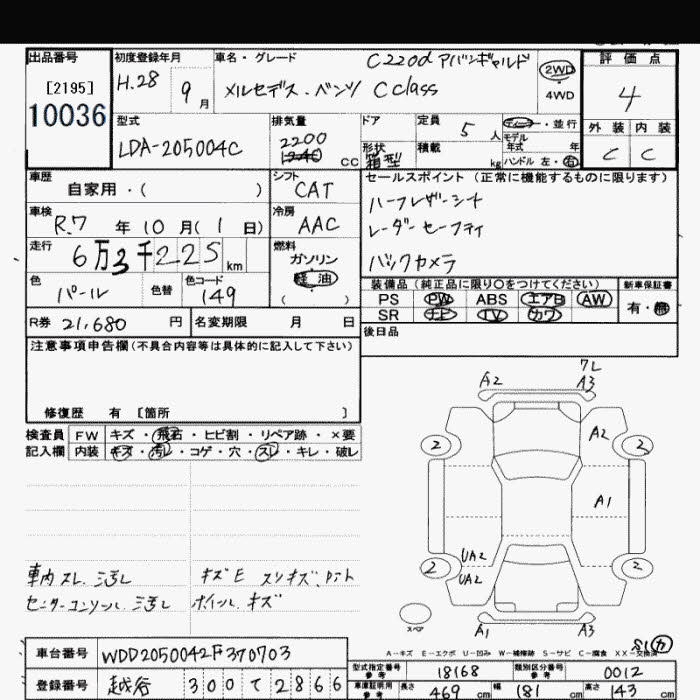 出品番号
[2195]
10036
初度登録年月
H.28 9月
車名・グレード
C220d アバンギャルド
メルセデス・ベンツ C class
2WD
4WD
評価点
4
外装 内装
C C
型式
LDA-205004C
排気量
2200
cc
ドア
形状
箱型
定員 5人
積載 kg
ディーラー・並行
モデル
年式 年
ハンドル 左・右
車歴
自家用・( )
シフト
CAT
車検
R.7年 10月( 1日)
冷房
AAC
走行
6万3千225km
燃料
ガソリン
軽油
( )
色
パール
色替
色コード
149
R券 21,680円
名変期限 月 日
セールスポイント(正常に機能するものに限ります)
ハーフレザーシート
レーダーセーフティ
バックカメラ
装備品(純正品に限り○をつけてください)
新車保証書
PS PW ABS エアB AW
SR ナビ TV カワ
有・無
後日品
注意事項申告欄(不具合内容等は具体的に記入して下さい)
修復歴 有 [箇所 ]
検査員
記入欄
FW キズ・飛石・ヒビ割・リペア跡・×要
内装 キズ・汚レ・コゲ・穴・スレ・キレ・破レ
車内スレ.ミ汚レ
センターコンソール.ミ汚レ
キズE スリキズ、ダント
ホイール.キズ
7L
A2
A3
A2
2
2
A1
UA2
UA2
2
2
スペア
A1
A3
S1
A-キズ E-エクボ U-凹み W-補修跡 S-サビ C-腐食 XX-交換済
車台番号 WDD2050042F370703
登録番号 越谷 300て2866
型式指定番号
参考
18168
類別区分番号
参考
0012
車庫証明用
参考
長さ 469cm 幅 181cm 高さ 143cm